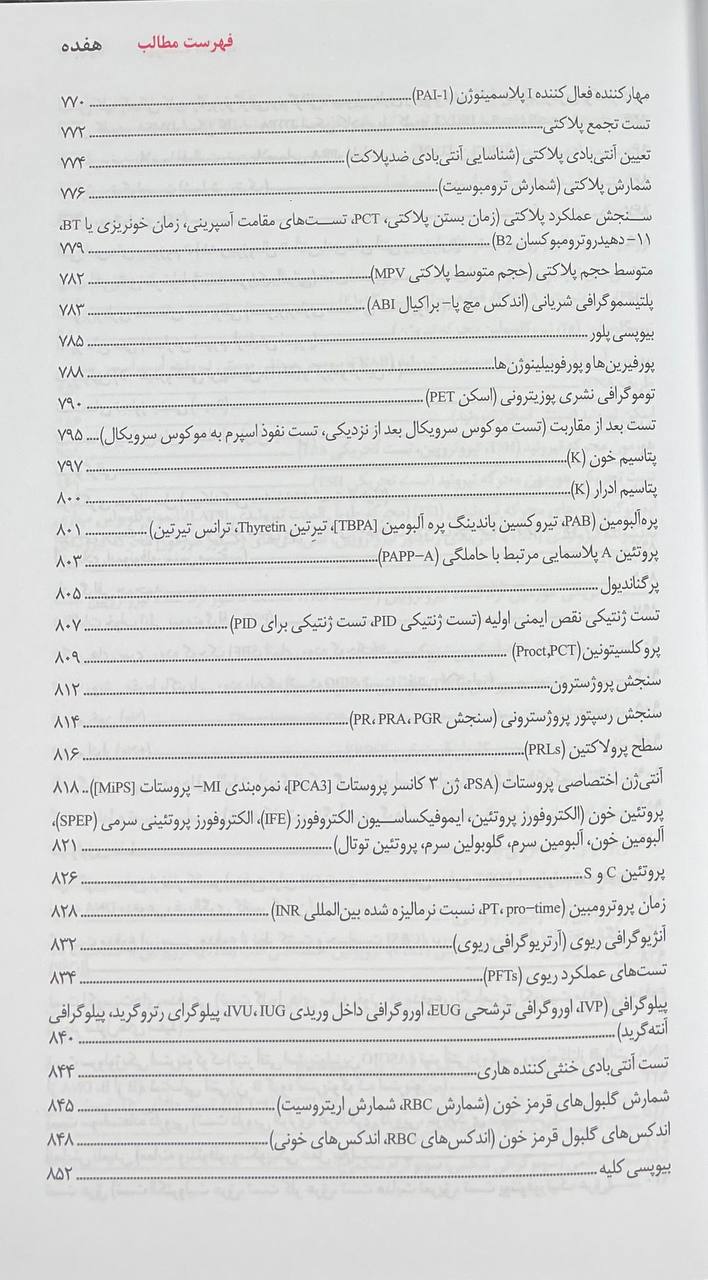 فهرست مطالب هفده
مهارکننده فعال‌کننده I پلاسمینوژن (PAI-1) ۷۷۰
تست تجمع پلاکتی ۷۷۲
تعیین آنتی‌بادی پلاکتی (شناسایی آنتی‌بادی ضدپلاکت) ۷۷۴
شمارش پلاکتی (شمارش ترومبوسیت) ۷۷۶
سنجش عملکرد پلاکتی (زمان بستن پلاکتی، PCT، تست‌های مقامت آسپرینی، زمان خونریزی یا BT،
۱۱- دهیدروترومبوکسان B2) ۷۷۹
متوسط حجم پلاکتی (حجم متوسط پلاکتی MPV) ۷۸۲
پلتیسموگرافی شریانی (اندکس مچ پا- براکیال ABI) ۷۸۳
بیوپسی پلور ۷۸۵
پورفیرین‌ها و پورفوبیلینوژن‌ها ۷۸۸
توموگرافی نشری پوزیترونی (اسکن PET) ۷۹۰
تست بعد از مقاربت (تست موکوس سرویکال بعد از نزدیکی، تست نفوذ اسپرم به موکوس سرویکال) ۷۹۵
پتاسیم خون (K) ۷۹۷
پتاسیم ادرار (K) ۸۰۰
پره‌آلبومین (PAB، تیروکسین باندینگ پره آلبومین [TBPA]، تیرِتین Thyretin، ترانس تیرتین) ۸۰۱
پروتئین A پلاسمایی مرتبط با حاملگی (PAPP-A) ۸۰۳
پرگناندیول ۸۰۵
تست ژنتیکی نقص ایمنی اولیه (تست ژنتیکی PID، تست ژنتیکی برای PID) ۸۰۷
پروکلسیتونین (Proct,PCT) ۸۰۹
سنجش پروژسترون ۸۱۲
سنجش رسپتور پروژسترونی (سنجش PR، PRA، PGR) ۸۱۴
سطح پرولاکتین (PRLs) ۸۱۶
آنتی‌ژن اختصاصی پروستات (PSA، ژن ۳ کانسر پروستات [PCA3]، نمره‌بندی MI- پروستات [MiPS]) ۸۱۸
پروتئین خون (الکتروفورز پروتئین، ایموفیکساسیون الکتروفورز (IFE)، الکتروفورز پروتئینی سرمی (SPEP)،
آلبومین خون، آلبومین سرم، گلوبولین سرم، پروتئین توتال) ۸۲۱
پروتئین C و S ۸۲۶
زمان پروترومبین (PT، pro-time، نسبت نرمالیزه شده بین‌المللی INR) ۸۲۸
آنژیوگرافی ریوی (آرتریوگرافی ریوی) ۸۳۲
تست‌های عملکرد ریوی (PFTs) ۸۳۴
پیلوگرافی (IVP، اوروگرافی ترشحی EUG، اوروگرافی داخل وریدی IVU، IUG، پیلوگرای رتروگرید، پیلوگرافی
آنته‌گرید) ۸۴۰
تست آنتی‌بادی خنثی‌کننده هاری ۸۴۴
شمارش گلبول‌های قرمز خون (شمارش RBC، شمارش اریتروسیت) ۸۴۵
اندکس‌های گلبول قرمز خون (اندکس‌های RBC، اندکس‌های خونی) ۸۴۸
بیوپسی کلیه ۸۵۲